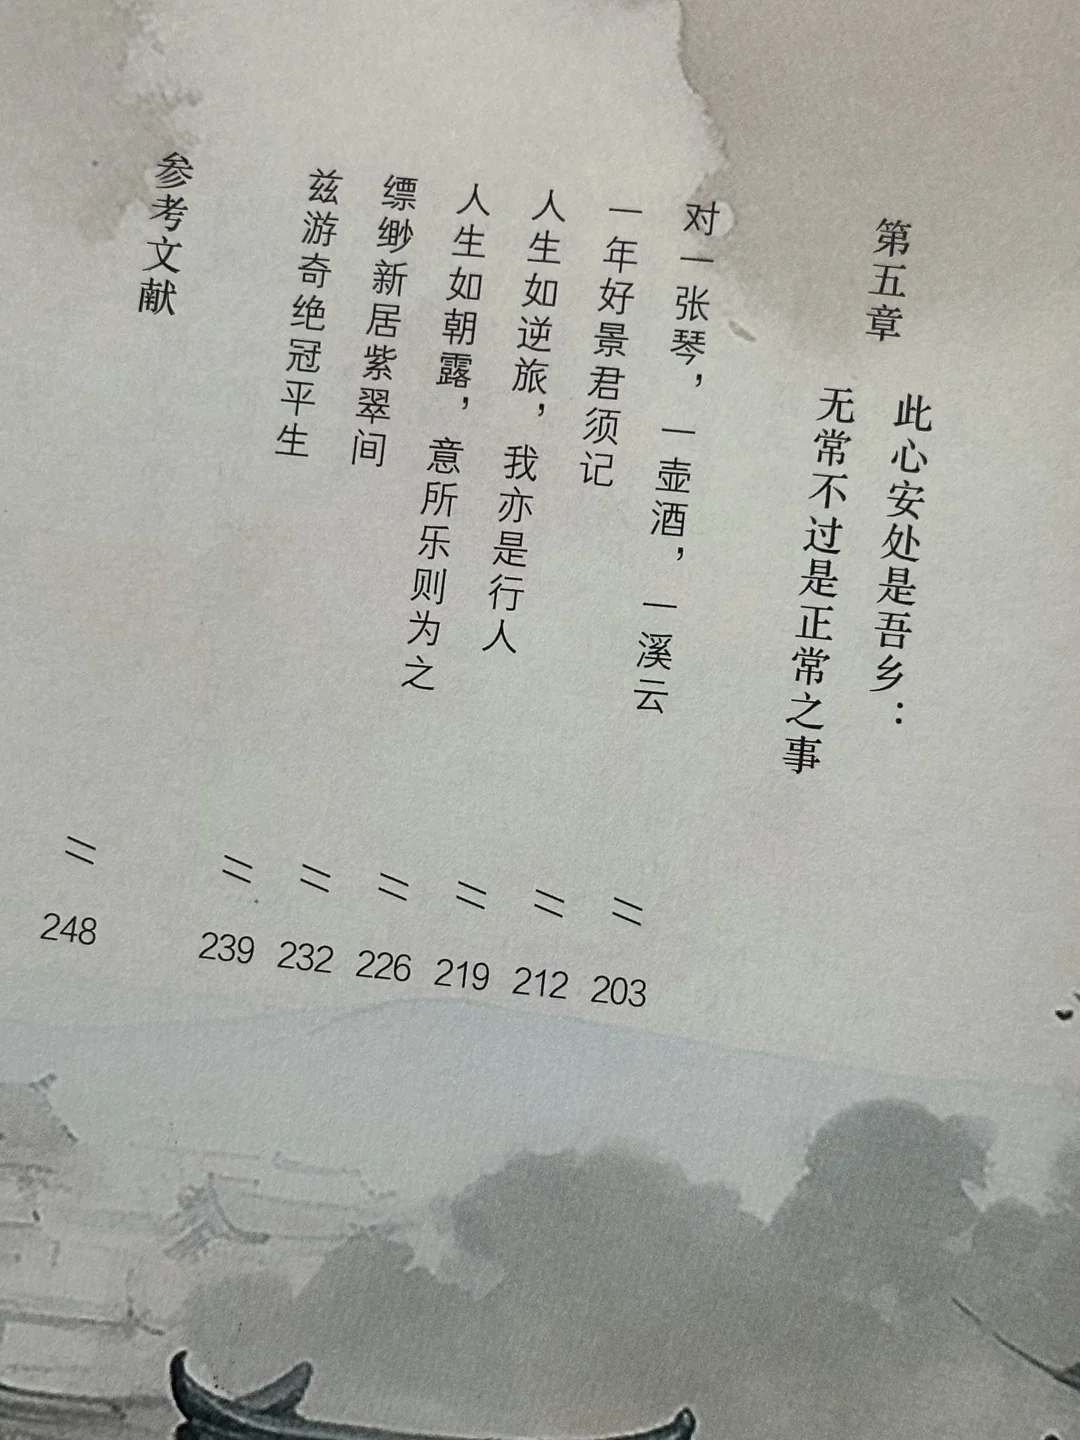 第五章
此心安处是吾乡：
无常不过是正常之事
对一张琴，一壶酒，一溪云 = 203
一年好景君须记 = 212
人生如逆旅，我亦是行人 = 219
人生如朝露，意所乐则为之 = 226
缥缈新居紫翠间 = 232
兹游奇绝冠平生 = 239
参考文献 = 248